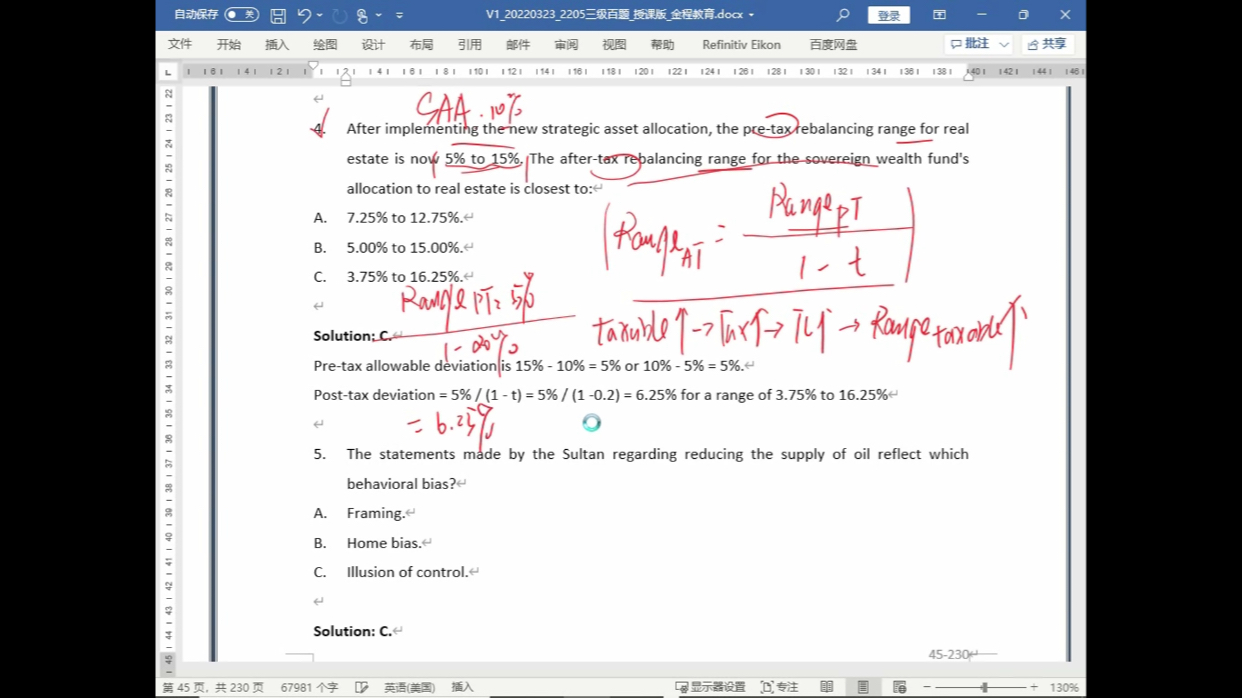 自动保存 关 V1_20220323_2205三级百题_授课版_金程教育.docx 登录
文件 开始 插入 绘图 设计 布局 引用 邮件 审阅 视图 帮助 Refinitiv Eikon 百度网盘 批注 共享
SAA. 10%
4. After implementing the new strategic asset allocation, the pre-tax rebalancing range for real
estate is now 5% to 15%. The after-tax rebalancing range for the sovereign wealth fund's
allocation to real estate is closest to:
A. 7.25% to 12.75%.
B. 5.00% to 15.00%.
C. 3.75% to 16.25%.
Range AT = Range PT
1 - t
Range PT = 5%
1 - 20%
taxable↑ → Tax↑ → TC↑ → Range taxable↑
Solution: C.
Pre-tax allowable deviation is 15% - 10% = 5% or 10% - 5% = 5%.
Post-tax deviation = 5% / (1 - t) = 5% / (1 -0.2) = 6.25% for a range of 3.75% to 16.25%
= 6.25%
5. The statements made by the Sultan regarding reducing the supply of oil reflect which
behavioral bias?
A. Framing.
B. Home bias.
C. Illusion of control.
Solution: C.
45-230
第 45 页，共 230 页 67981 个字 英语(美国) 插入 显示器设置 专注 130%